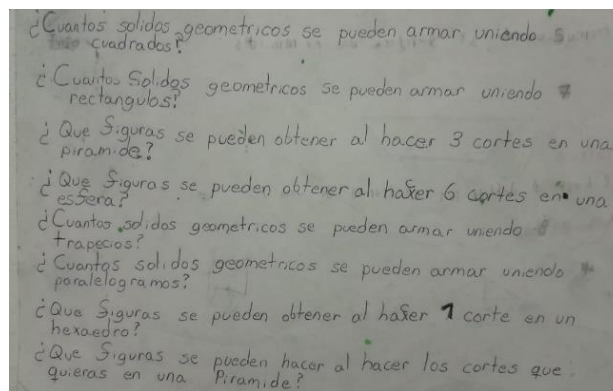 ¿Cuantos solidos geometricos se pueden armar uniendo
cuadrados?
¿Cuantos Solidos geometricos se pueden armar uniendo
rectangulos?
¿Que figuras se pueden obtener al hacer 3 cortes en una
piramide?
¿Que figuras se pueden obtener al haser 6 cortes en una
esfera?
¿Cuantos solidos geometricos se pueden armar uniendo
trapecios?
¿Cuantos solidos geometricos se pueden armar uniendo
paralelogramos?
¿Que figuras se pueden obtener al haser 1 corte en un
hexaedro?
¿Que figuras se pueden hacer al hacer los cortes que
quieras en una Piramide?